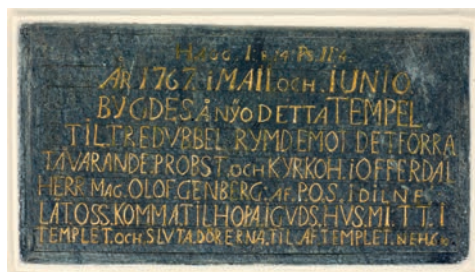 ÅR 1767. I MAII. OCH. IUNIO.
BYGDES Å NŸO DETTA TEMPEL
TIL TREDUBBEL RYMD EMOT DET FÖRRA
TÅVARANDE. PROBST. OCH KYRKOH. I OFFERDAL
HERR MAG. OLOF. GENBERG. AF. P.O.S. I DIL N F
LÅT OSS. KOMMA TILHOPA. I GUDS. HUS. MI. T T. I
TEMPLET. OCH SLUTA. DÖRERNA. TIL AF TEMPLET. NEH. 6